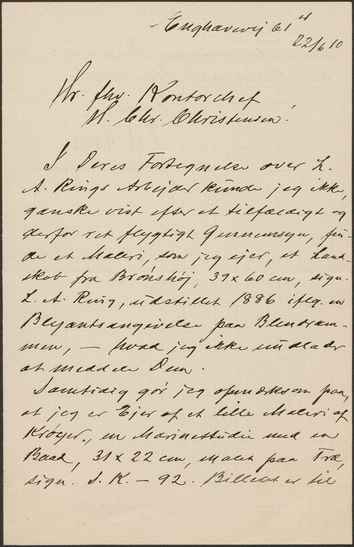 Enghavevej 61 st
22/6 10
Hr. fhv. Kontorchef
H. Chr. Christensen.
I Deres Fortegnelse over L.
A. Rings Arbejder kunde jeg ikke,
ganske vist efter et tilfældigt og
derfor ret flygtigt Gennemsyn, fin-
de et Maleri, som jeg ejer, et Land-
skab fra Brønshøj, 39 x 60 cm, sign.
L. A. Ring, udstillet 1886 iflg. en
Blyantsangivelse paa Blendram-
men, – hvad jeg ikke undlader
at meddele Dem.
Samtidig gør jeg opmærksom paa,
at jeg er Ejer af et lille Maleri af
Krøyer, en Marinestudie med en
Baad, 31 x 22 cm, malet paa Træ,
sign. S. K. – 92. Billedet er til